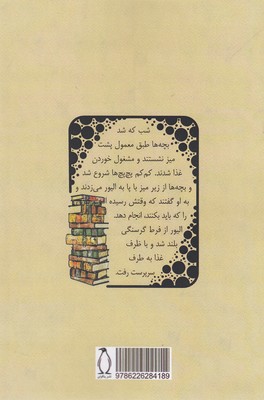 شب که شد
بچه‌ها طبق معمول پشت
میز نشستند و مشغول خوردن
غذا شدند. کم‌کم پچ‌پچ‌ها شروع شد
و بچه‌ها از زیر میز با پا به الیور می‌زدند و
به او گفتند که وقتش رسیده
را که باید بکنند، انجام دهد.
الیور از فرط گرسنگی
بلند شد و با ظرف
غذا به طرف
سرپرست رفت.
9786226284189